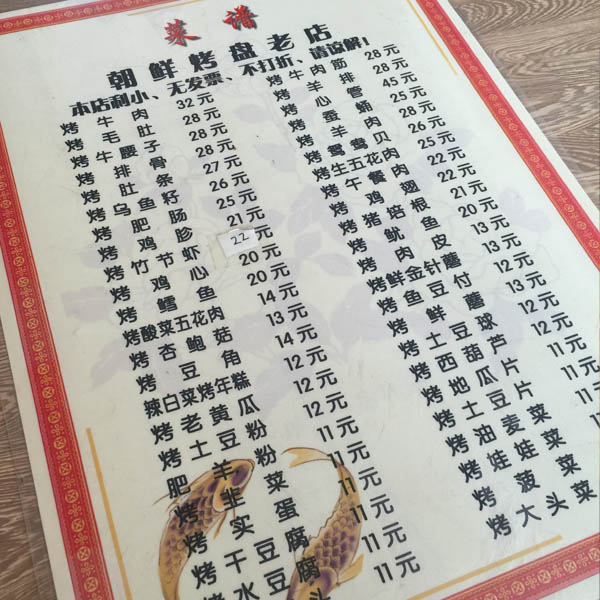 菜谱
朝鲜烤盘老店
本店利小、无发票、不打折、请谅解!
烤牛肉 32元
烤毛肚 28元
烤牛腰子 28元
烤排骨 28元
烤肚条 27元
烤乌鱼籽 26元
烤肥肠 25元
烤鸡胗 21元
烤竹节虾 22
烤鸡心 20元
烤鳕鱼 20元
烤酸菜五花肉 14元
烤杏鲍菇 13元
烤豆角 14元
辣白菜烤年糕 12元
烤老黄瓜 12元
烤土豆粉 12元
肥羊粉 11元
烤韭菜 11元
烤实蛋 11元
烤干豆腐 11元
烤水豆腐 11元
头
烤牛筋 28元
烤肉排 28元
烤羊心管 45元
烤蚕蛹 25元
烤羊肉 28元
烤鸳鸯贝 26元
烤生五花肉 25元
烤午餐肉 22元
烤鸡翅 22元
烤猪焙根 21元
烤鱿鱼 20元
烤肉皮 13元
烤鲜金针蘑 13元
烤鱼豆付 12元
烤鲜蘑 13元
烤土豆球 12元
烤西葫芦 12元
烤地瓜片 11元
烤土豆片 11元
烤油麦菜 11
烤娃娃菜
烤菠菜
烤大头菜